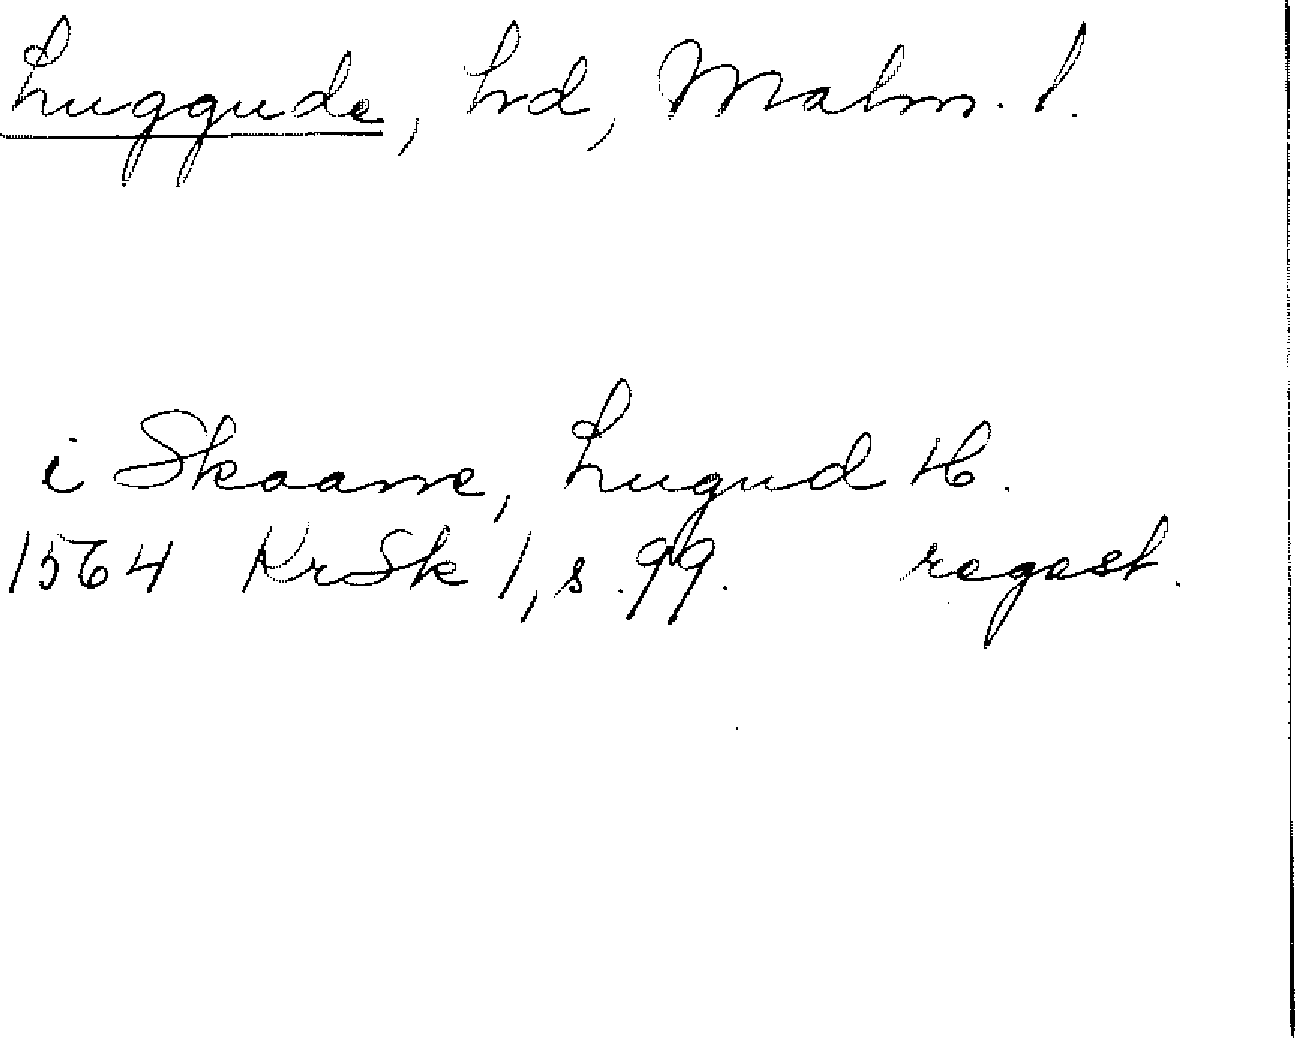 Luggude, hd, Malm. l.
i Skaane, Lugud H.
1564 KrSk 1, s. 99. regest.